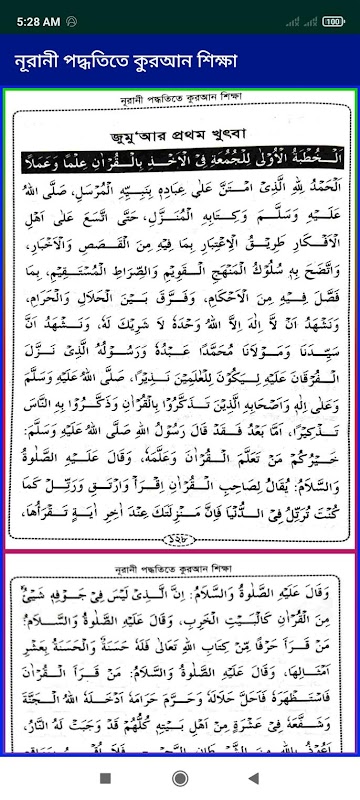 5:28 AM
100
নূরানী পদ্ধতিতে কুরআন শিক্ষা
নূরানী পদ্ধতিতে কুরআন শিক্ষা
জুমু'আর প্রথম খুৎবা
اَلْخُطْبَةُ الْاُوْلٰى لِلْجُمُعَةِ فِى الْاَخْذِ بِالْقُرْاٰنِ عِلْمًا وَعَمَلًا
اَلْحَمْدُ لِلّٰهِ الَّذِىْ امْتَنَّ عَلٰى عِبَادِهٖ بِنَبِيِّهِ الْمُرْسَلِ، صَلَّى اللهُ
عَلَيْهِ وَسَلَّمَ وَكِتَابِهِ الْمُنَزَّلِ، حَتّٰى اتَّسَعَ عَلٰى اَهْلِ
الْاَفْكَارِ طَرِيْقُ الْاِعْتِبَارِ بِمَا فِيْهِ مِنَ الْقَصَصِ وَالْاَخْبَارِ،
وَاتَّضَحَ بِهٖ سُلُوْكُ الْمَنْهَجِ الْقَوِيْمِ وَالصِّرَاطِ الْمُسْتَقِيْمِ، بِمَا
فَصَّلَ فِيْهِ مِنَ الْاَحْكَامِ، وَفَرَّقَ بَيْنَ الْحَلَالِ وَالْحَرَامِ،
وَنَشْهَدُ اَنْ لَّا اِلٰهَ اِلَّا اللهُ وَحْدَهٗ لَا شَرِيْكَ لَهٗ، وَنَشْهَدُ اَنَّ
سَيِّدَنَا وَمَوْلَانَا مُحَمَّدًا عَبْدُهٗ وَرَسُوْلُهُ الَّذِىْ نَزَّلَ
الْفُرْقَانَ عَلَيْهِ لِيَكُوْنَ لِلْعٰلَمِيْنَ نَذِيْرًا، صَلَّى اللهُ عَلَيْهِ وَسَلَّمَ
وَعَلٰى اٰلِهٖ وَاَصْحَابِهِ الَّذِيْنَ تَذَكَّرُوْا بِالْقُرْاٰنِ وَذَكَّرُوْا بِهِ النَّاسَ
تَذْكِيْرًا، اَمَّا بَعْدُ فَقَدْ قَالَ رَسُوْلُ اللهِ صَلَّى اللهُ عَلَيْهِ وَسَلَّمَ:
خَيْرُكُمْ مَنْ تَعَلَّمَ الْقُرْاٰنَ وَعَلَّمَهٗ، وَقَالَ عَلَيْهِ الصَّلٰوةُ
وَالسَّلَامُ: يُقَالُ لِصَاحِبِ الْقُرْاٰنِ اِقْرَأْ وَارْتَقِ وَرَتِّلْ كَمَا
كُنْتَ تُرَتِّلُ فِى الدُّنْيَا فَاِنَّ مَنْزِلَتَكَ عِنْدَ اٰخِرِ اٰيَةٍ تَقْرَأُهَا،
১২৮
নূরানী পদ্ধতিতে কুরআন শিক্ষা
وَقَالَ عَلَيْهِ الصَّلٰوةُ وَالسَّلَامُ: اِنَّ الَّذِىْ لَيْسَ فِىْ جَوْفِهٖ شَيْئٌ
مِنَ الْقُرْاٰنِ كَالْبَيْتِ الْخَرِبِ، وَقَالَ عَلَيْهِ الصَّلٰوةُ وَالسَّلَامُ:
مَنْ قَرَأَ حَرْفًا مِّنْ كِتَابِ اللهِ تَعَالٰى فَلَهٗ حَسَنَةٌ وَالْحَسَنَةُ بِعَشْرِ
اَمْثَالِهَا، وَقَالَ عَلَيْهِ الصَّلٰوةُ وَالسَّلَامُ: مَنْ قَرَأَ الْقُرْاٰنَ
فَاسْتَظْهَرَهٗ فَاَحَلَّ حَلَالَهٗ وَحَرَّمَ حَرَامَهٗ اَدْخَلَهُ اللهُ الْجَنَّةَ
وَشَفَّعَهٗ فِىْ عَشَرَةٍ مِنْ اَهْلِ بَيْتِهٖ كُلُّهُمْ قَدْ وَجَبَتْ لَهُ النَّارُ،
اَعُوْذُ بِاللهِ مِنَ الشَّيْطَانِ الرَّجِيْمِ، فَلَا اُقْسِمُ بِمَوَاقِعِ